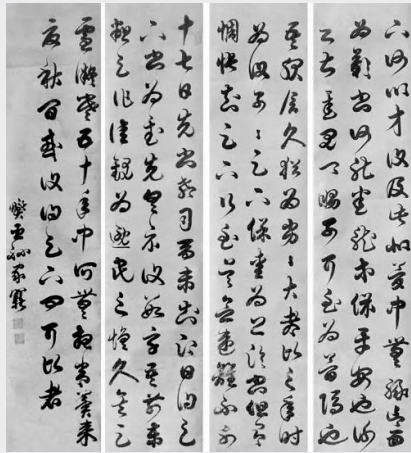 下何以方復及此似夢中無緣言面
為歎書何能悉龍保等平安也謝
之甚遲見卿舅可耳至為簡隔也
吾服食久猶為劣劣大都比之年時
為復可可足下保愛為上臨書但有
惆悵知足下行至吳念違離不可
十七日先書郗司馬未去即日得足
下書為慰先書以具示復數字吾前東
粗足作佳觀為逸民之懷久矣足
雪凝寒五十年中所無想頃如常冀來
夏秋間或復得足下問耳比者